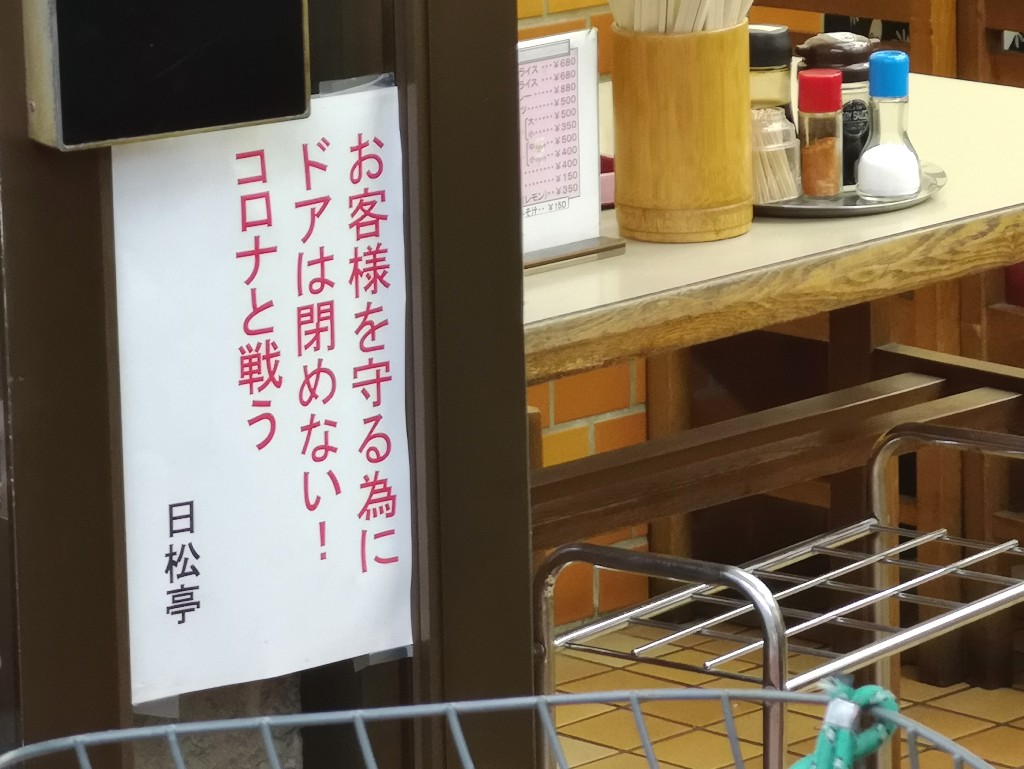 お客様を守る為に
ドアは閉めない！
コロナと戦う
日松亭
ライス…¥680
ライス…¥680
¥880
¥500
¥350
¥500
¥400
¥400
¥150
レモン ¥350
¥150